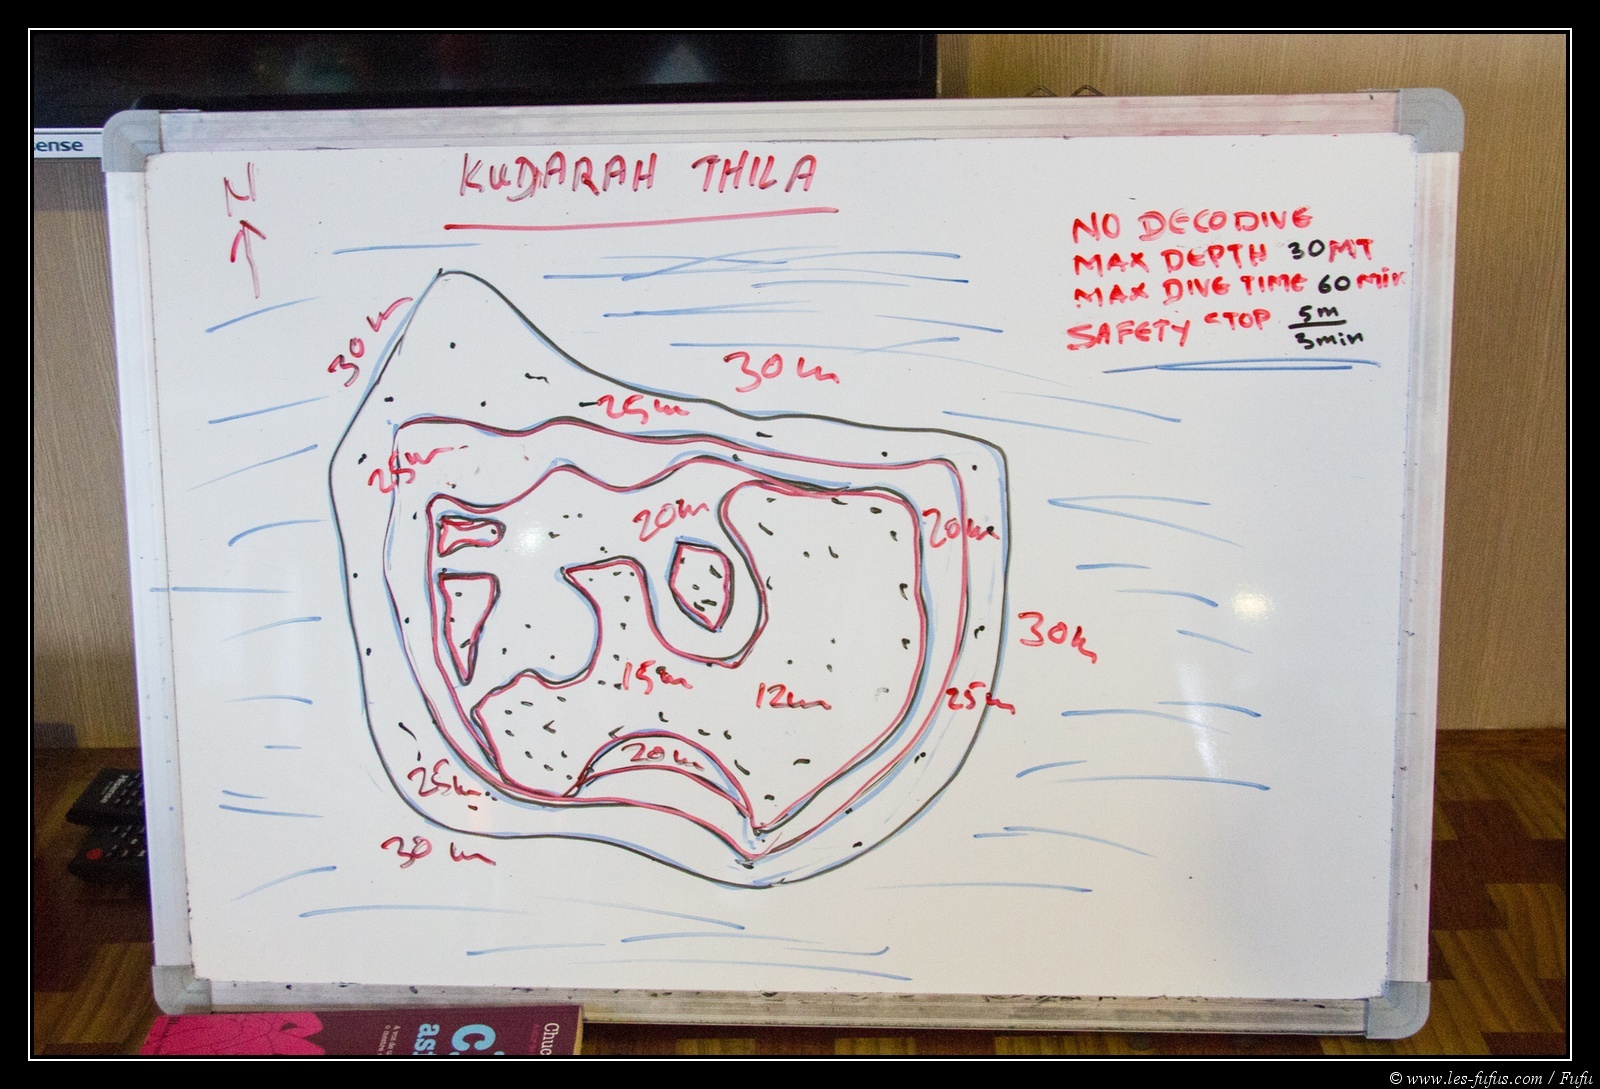 ense
N
KUDARAH THILA
NO DECO DIVE
MAX DEPTH 30 MT
MAX DIVE TIME 60 min
SAFETY STOP 5m
3min
30 m
30 m
25m
25m
20m
20m
30m
15m
12m
25m
20m
25m
30 m
Chuc
© www.les-fufus.com / Fufu